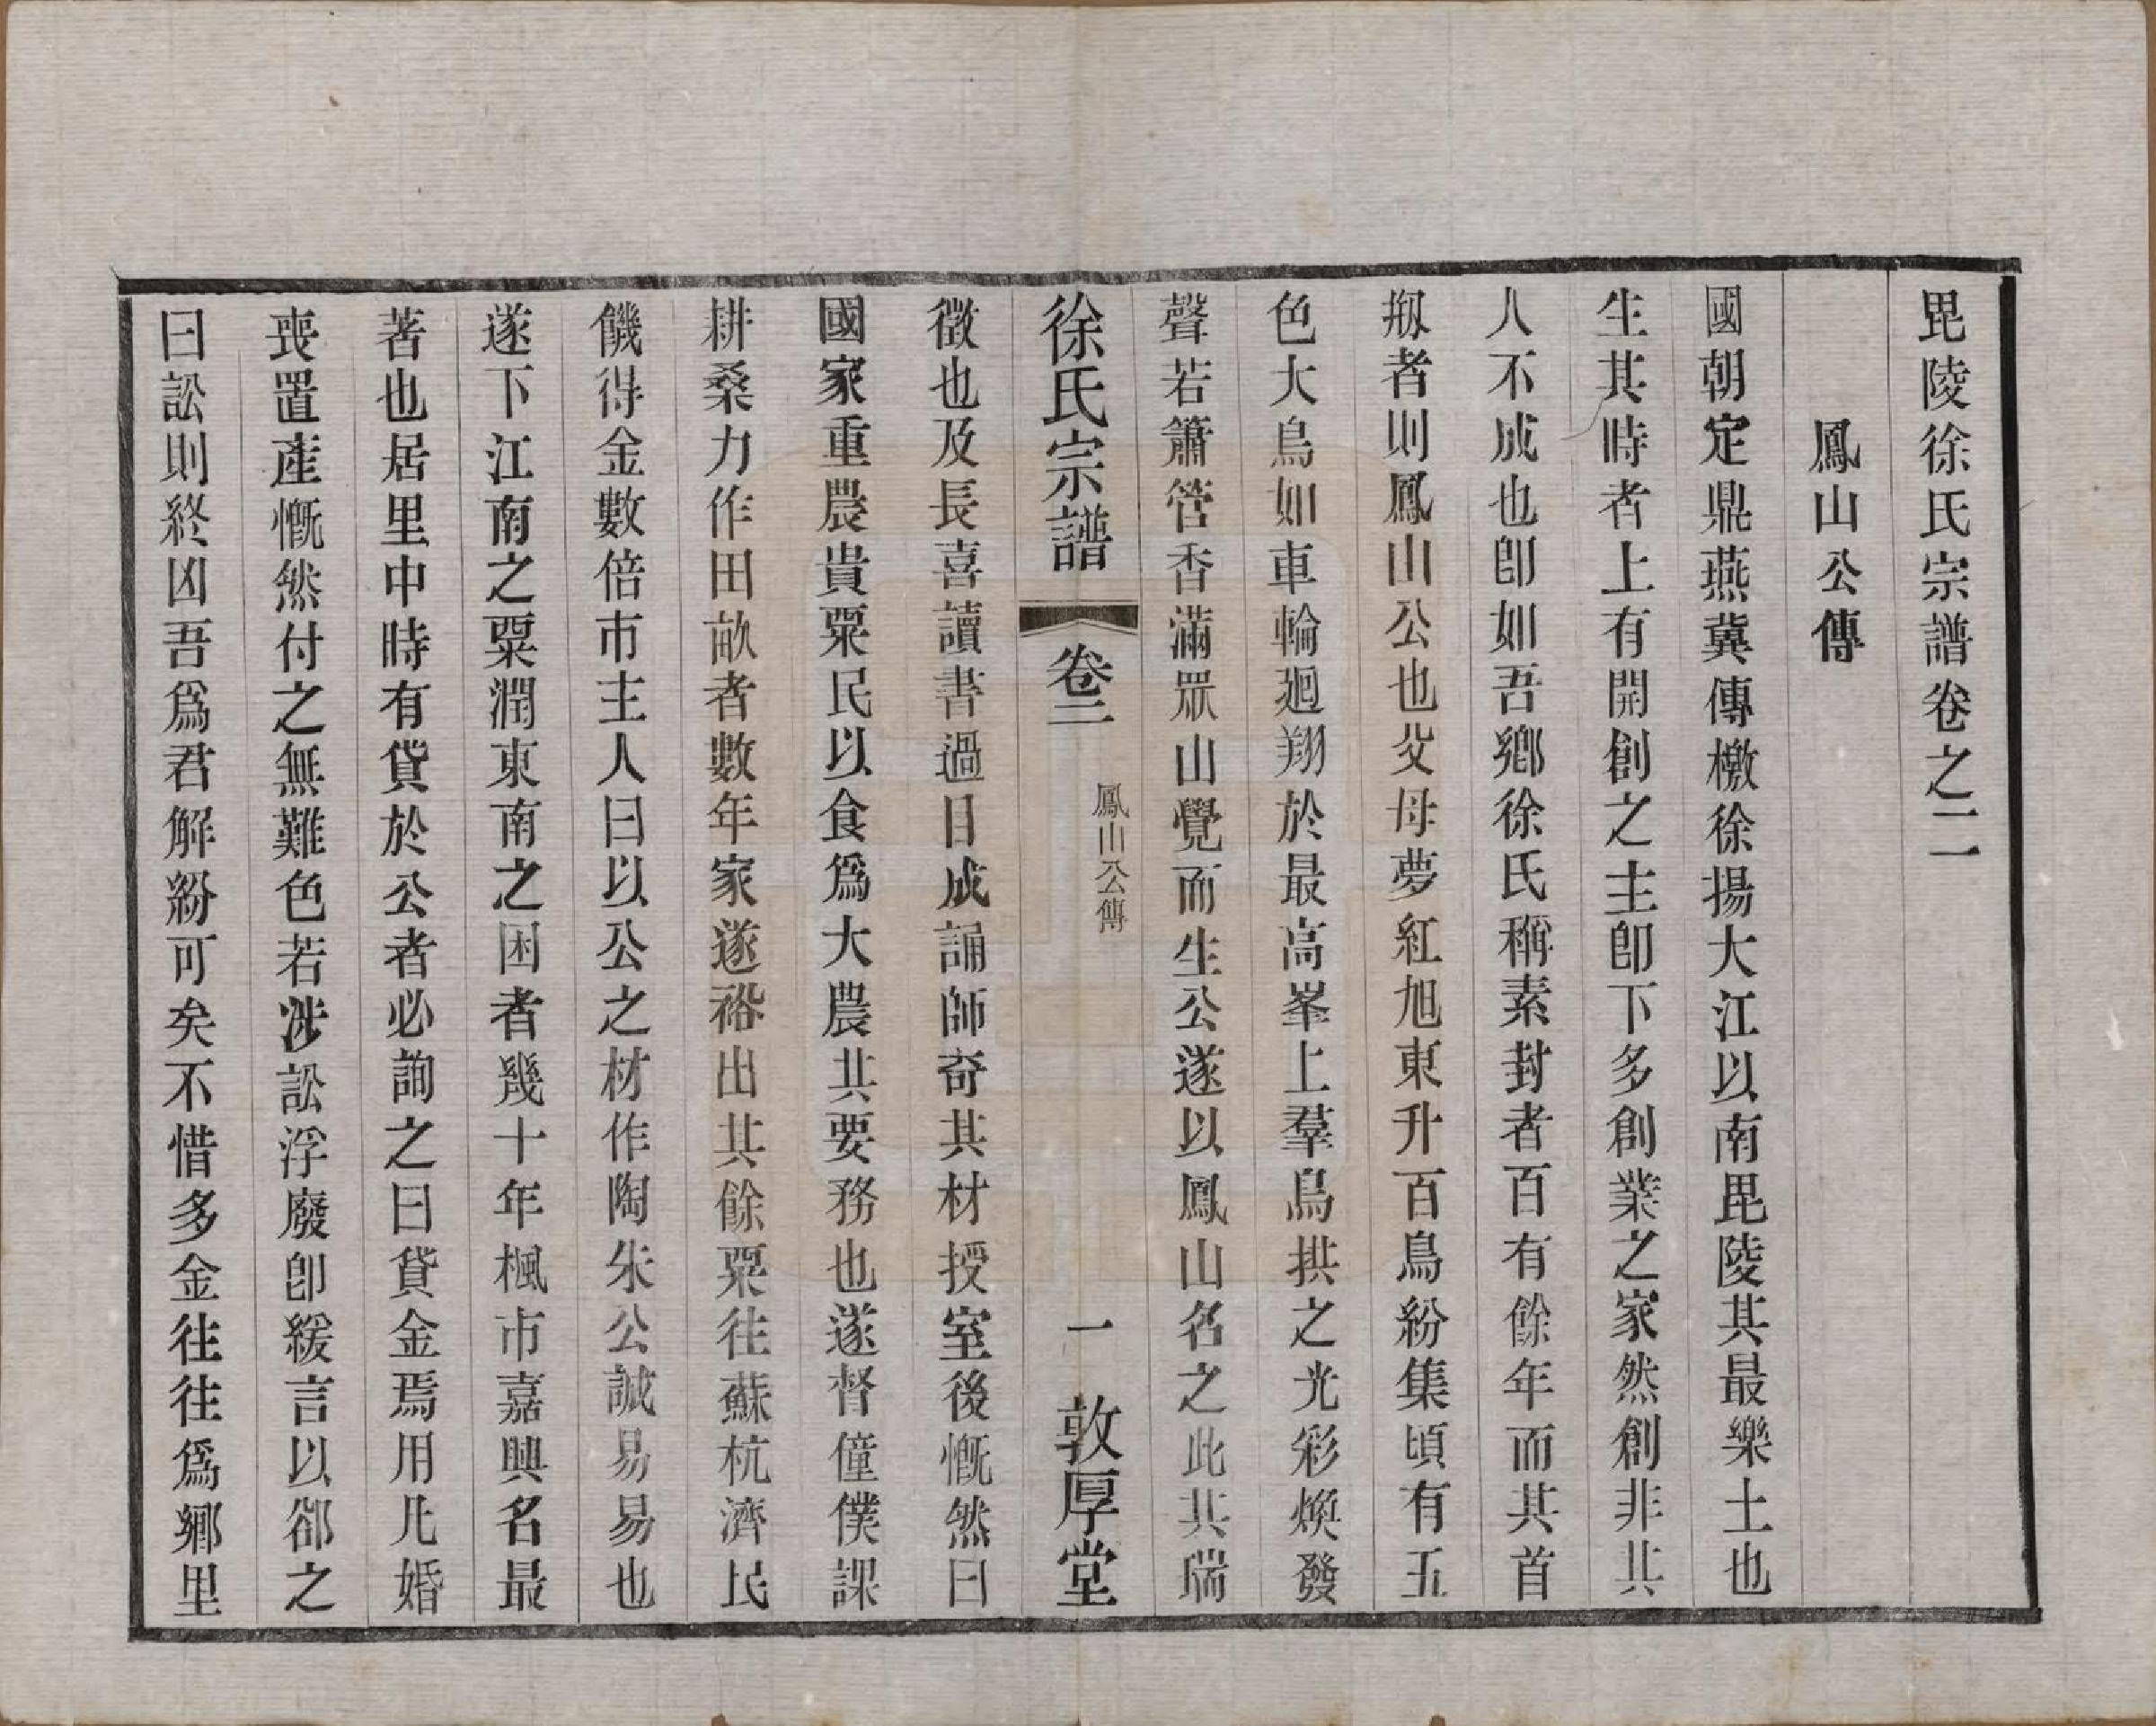 毘陵徐氏宗譜卷之二
鳳山公傳
國朝定鼎燕冀傳檄徐揚大江以南毘陵其最樂土也
生其時者上有開創之主卽下多創業之家然創非其
人不成也卽如吾鄕徐氏稱素封者百有餘年而其首
剏者則鳳山公也父母夢紅旭東升百鳥紛集頃有五
色大鳥如車輪迴翔於最高峯上羣鳥拱之光彩煥發
聲若簫管香滿眾山覺而生公遂以鳳山名之此其瑞
徐氏宗譜
卷二
鳳山公傳
一
敦厚堂
徵也及長喜讀書過目成誦師奇其材授室後慨然曰
國家重農貴粟民以食爲大農其要務也遂督僮僕課
耕桑力作田畝者數年家遂裕出其餘粟往蘇杭濟民
饑得金數倍市主人曰以公之材作陶朱公誠易易也
遂下江南之粟潤東南之困者幾十年楓市嘉興名最
著也居里中時有貸於公者必詢之曰貸金焉用凡婚
喪置產慨然付之無難色若涉訟浮廢卽緩言以卻之
曰訟則終凶吾爲君解紛可矣不惜多金往往爲鄕里